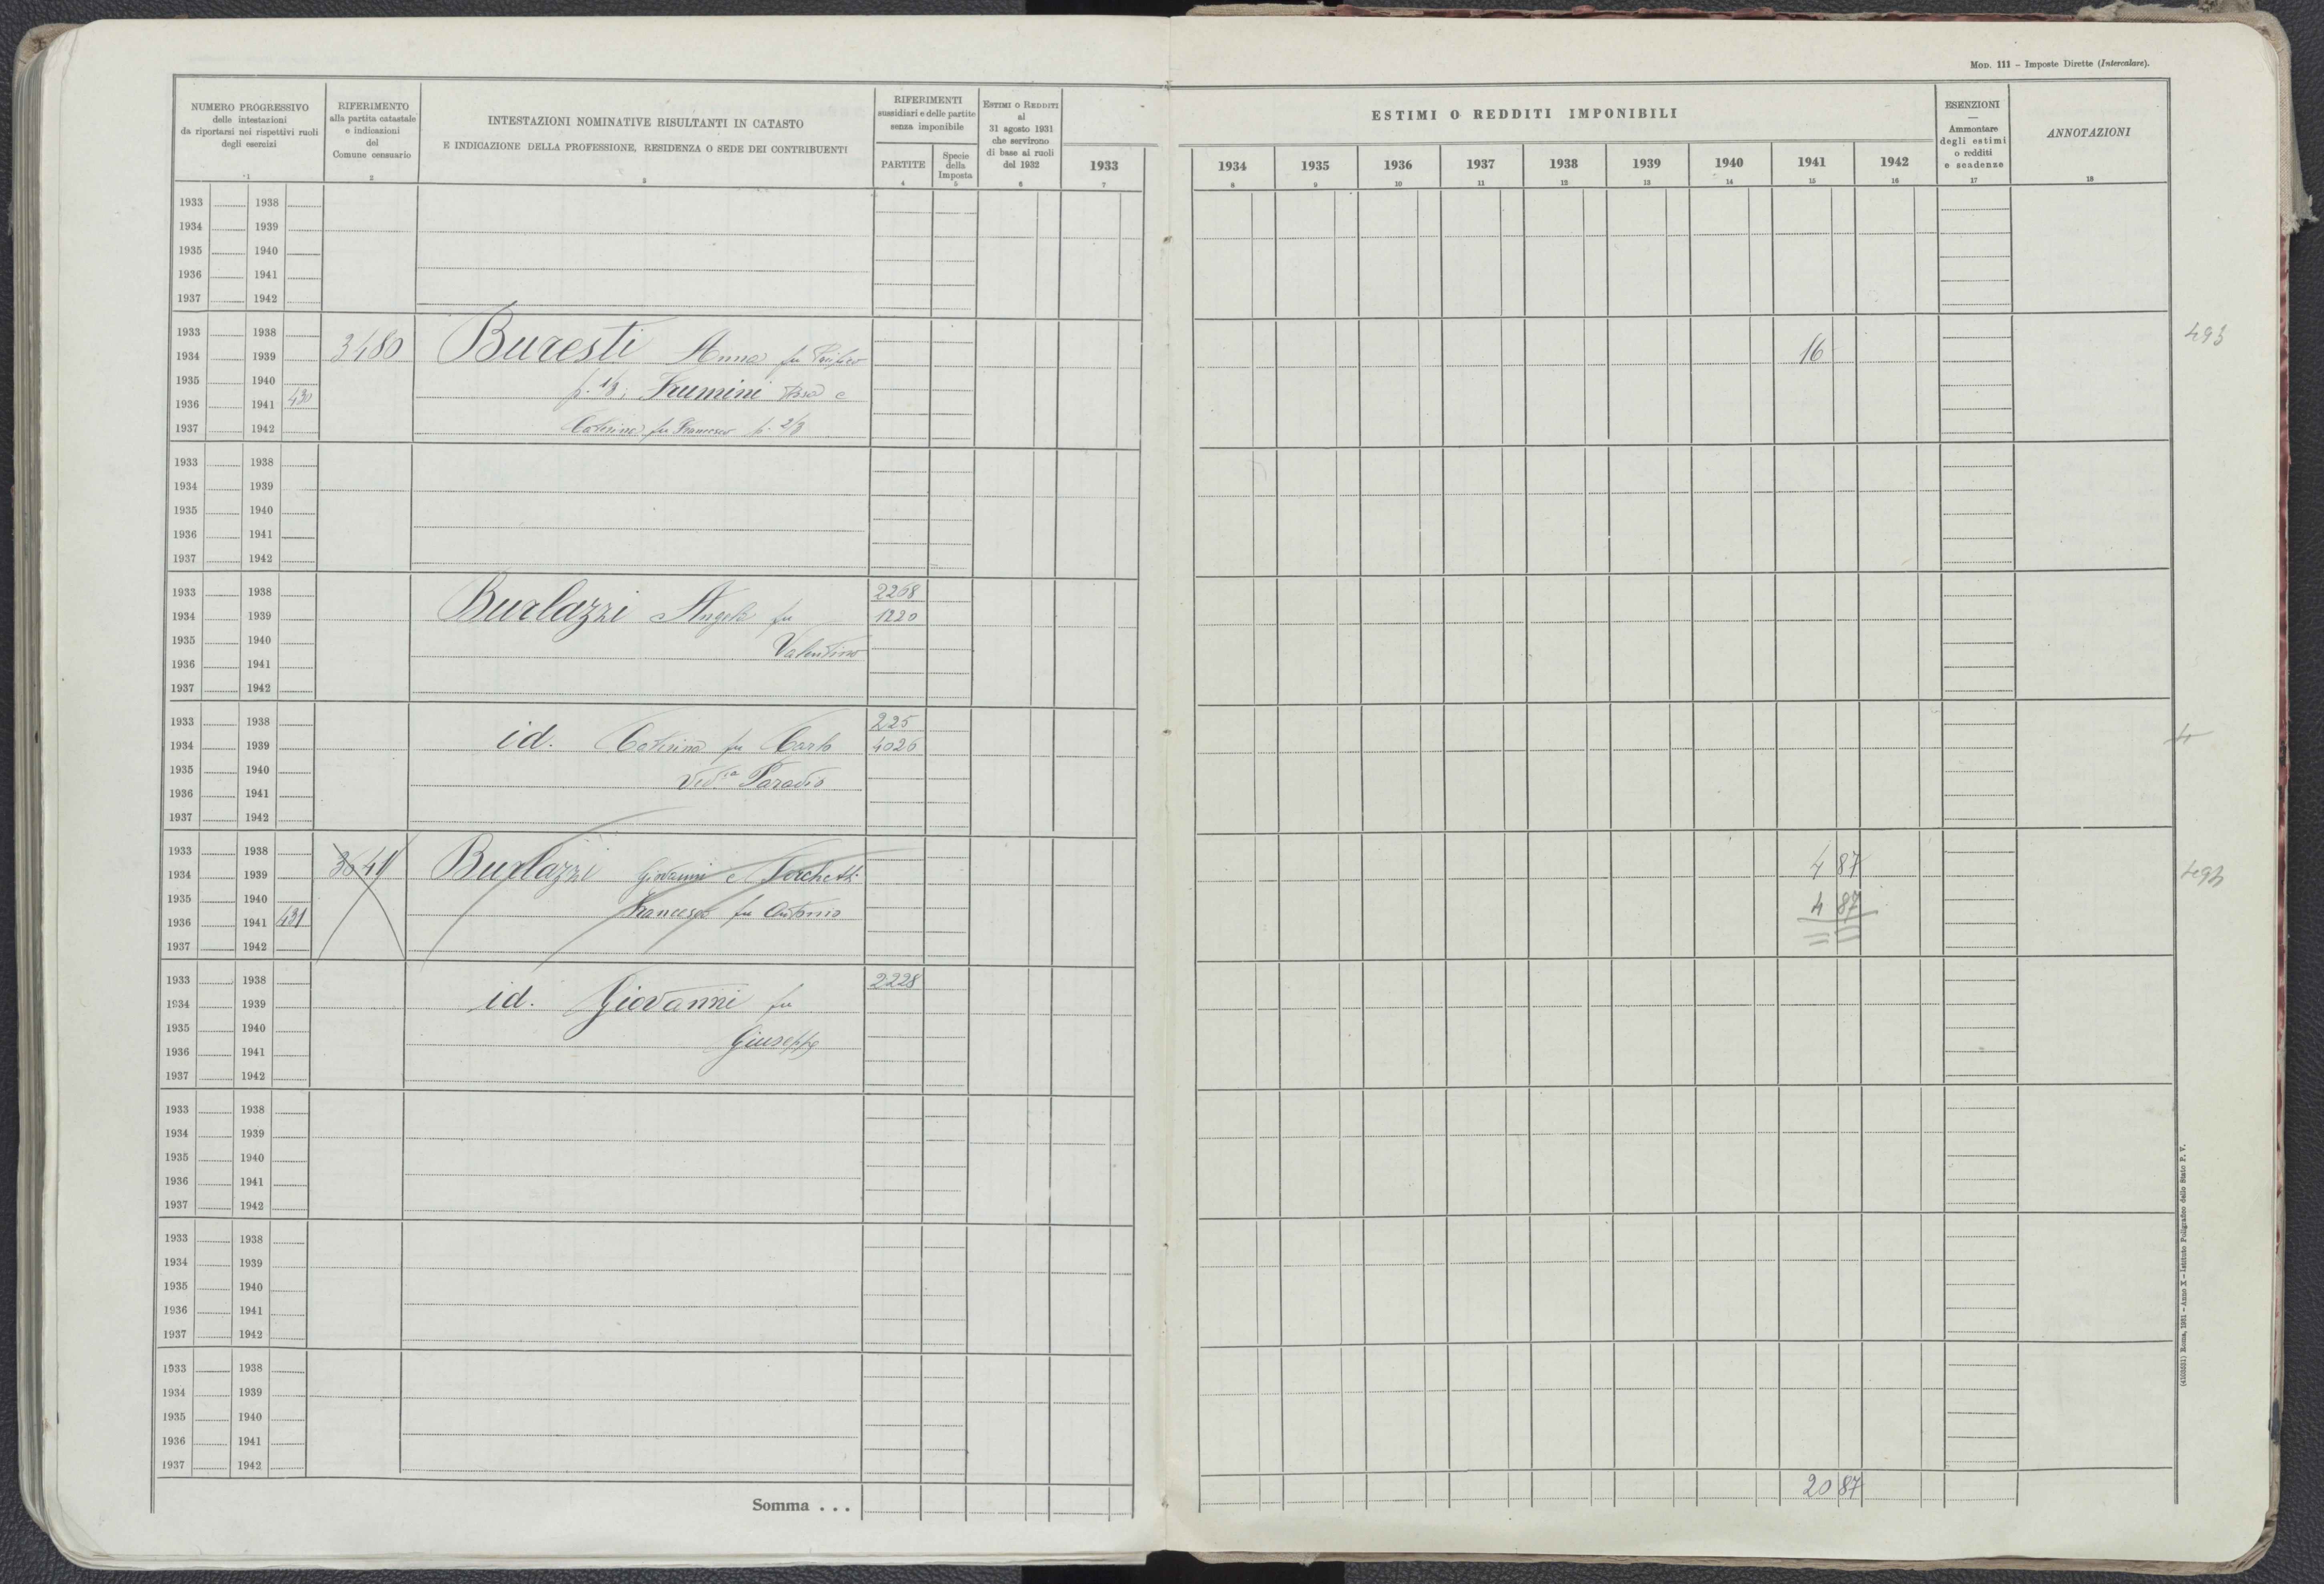 MOD. 111 – Imposte Dirette (Intercalare).
NUMERO PROGRESSIVO
delle intestazioni
da riportarsi nei rispettivi ruoli
degli esercizi
1
RIFERIMENTO
alla partita catastale
e indicazioni
del
Comune censuario
2
INTESTAZIONI NOMINATIVE RISULTANTI IN CATASTO
E INDICAZIONE DELLA PROFESSIONE, RESIDENZA O SEDE DEI CONTRIBUENTI
3
RIFERIMENTI
sussidiari e delle partite
senza imponibile
PARTITE
4
Specie
della
Imposta
5
ESTIMI O REDDITI
al
31 agosto 1931
che servirono
di base ai ruoli
del 1932
6
ESTIMI O REDDITI IMPONIBILI
1933 1934 1935 1936 1937 1938 1939 1940 1941 1942
7 8 9 10 11 12 13 14 15 16
ESENZIONI
—
Ammontare
degli estimi
o redditi
e scadenze
17
ANNOTAZIONI
18
1933 1938
1934 1939
1935 1940
1936 1941
1937 1942
1933 1938
1934 1939 3480 Buresti Anna fu Pacifico 16 493
1935 1940 p. 1/3; Frumini Rosa e
1936 1941 430
1937 1942 Caterina fu Francesco p. 2/3
1933 1938
1934 1939
1935 1940
1936 1941
1937 1942
1933 1938 2268
1934 1939 Burlazzi Angela fu 1220
1935 1940 Valentino
1936 1941
1937 1942
1933 1938 225
1934 1939 id. Caterina fu Carlo 4026
1935 1940 Ved.a Paradio
1936 1941
1937 1942
1933 1938
1934 1939 Burlazzi Giovanni e 4 87
1935 1940 Francesco fu Antonio 4 87
1936 1941 431
1937 1942
1933 1938 2228
1934 1939 id. Giovanni fu
1935 1940 Giuseppe
1936 1941
1937 1942
1933 1938
1934 1939
1935 1940
1936 1941
1937 1942
1933 1938
1934 1939
1935 1940
1936 1941
1937 1942
1933 1938
1934 1939
1935 1940
1936 1941
1937 1942
Somma . . . 20 87